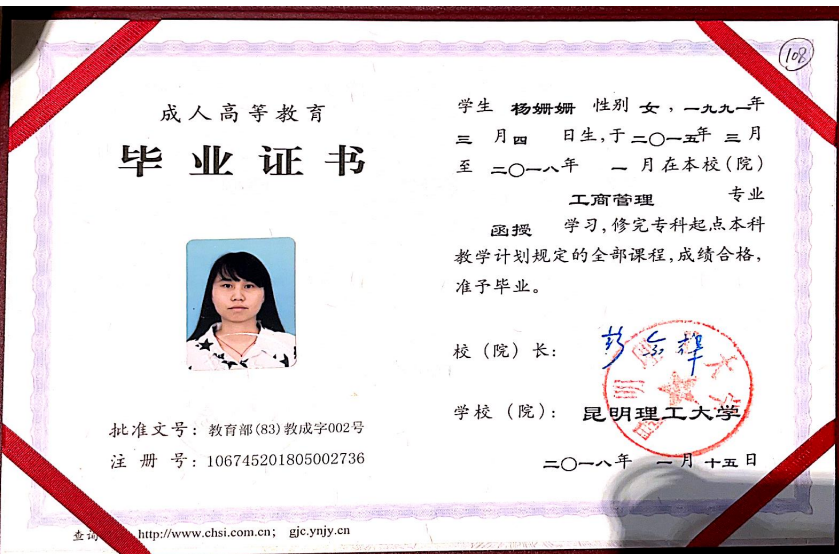 108
成人高等教育
毕业证书
批准文号：教育部(83)教成字002号
注 册 号：106745201805002736
查询 http://www.chsi.com.cn; gjc.ynjy.cn
学生 杨姗姗 性别 女，一九九一年
三 月 四 日生，于 二〇一五年 三 月
至 二〇一八年 一 月在本校（院）
工商管理 专业
函授 学习，修完专科起点本科
教学计划规定的全部课程，成绩合格，
准予毕业。
校（院）长：
学校（院）：昆明理工大学
二〇一八年 一月十五日